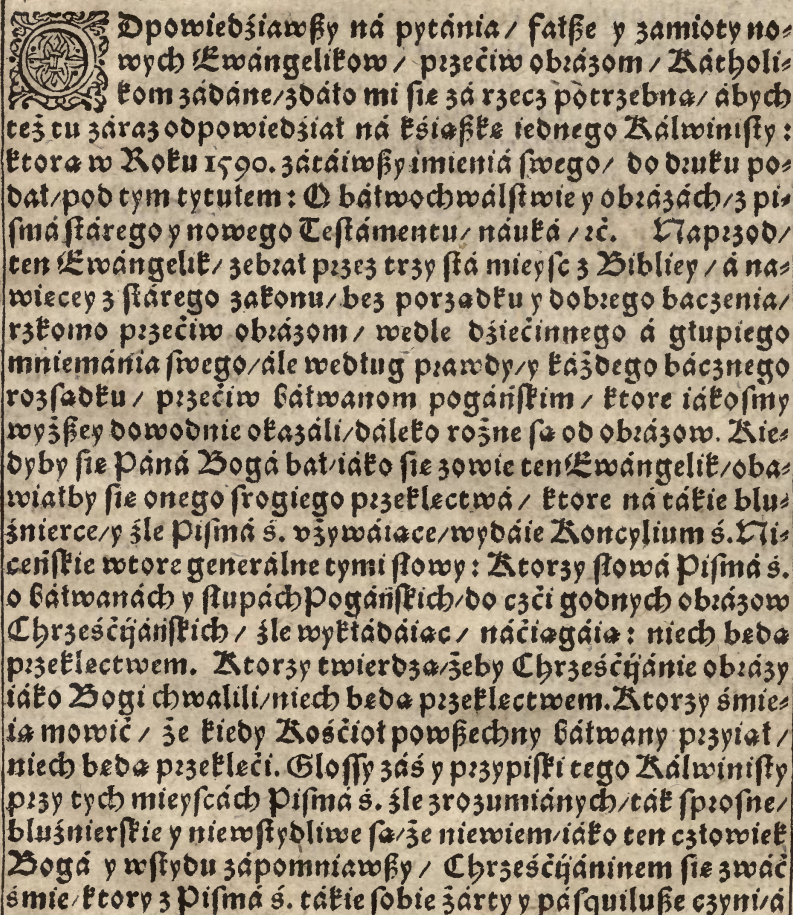 ODpowiedźiawßy ná pytánia / fałße y zamioty no⸗
wych Ewángelikow / przećiw obrázom / Kátholi⸗
kom zádáne / zdáło mi się zá rzecz potrzebną / ábych
też tu záraz odpowiedźiał ná kśiąßkę iednego Kálwinisty :
ktora w Roku 1590. zátáiwßy imieniá swego / do druku po⸗
dał / pod tym tytułem : O báłwochwálstwie y obrázách / z pi⸗
smá stárego y nowego Testámentu / náuká / ꝛc. Naprzod /
ten Ewángelik / zebrał przez trzy stá mieysc z Bibliey / á na⸗
więcey z stárego zakonu / bez porządku y dobrego baczenia /
rzkomo przećiw obrázom / wedle dźiećinnego á głupiego
mniemánia swego / ále według prawdy / y káżdego bácznego
rozsądku / przećiw báłwanom pogáńskim / ktore iákosmy
wyżßey dowodnie okazáli / dáleko rożne są od obrázow. Kie⸗
dyby się Páná Bogá bał / iáko się zowie ten Ewángelik / oba⸗
wiałby się onego srogiego przeklęctwá / ktore ná tákie blu⸗
źnierce / y źle Pismá ś. vżywáiące / wydáie Koncylium ś. Ni⸗
ceńskie wtore generálne tymi słowy : Ktorzy słowá Pismá ś.
o báłwanách y słupách Pogáńskich / do czći godnych obrázow
Chrześćijáńskich / źle wykłádáiąc / náćiągáią : niech będą
przeklęctwem. Ktorzy twierdzą / żeby Chrześćijánie obrázy
iáko Bogi chwalili / niech będą przeklęctwem. Ktorzy śmie⸗
ią mowić / że kiedy Kośćioł powßechny báłwany przyiął /
niech będą przeklęći. Glossy záś y przypiski tego Kálwinisty
przy tych mieyscách Pismá ś. źle zrozumiánych / ták sprosne /
bluźnierskie y niewstydliwe są / że niewiem / iáko ten człowiek
Bogá y wstydu zápomniawßy / Chrześćijáninem się zwáć
śmie / ktory z Pismá ś. tákie sobie żárty y pásquiluße czyni / á